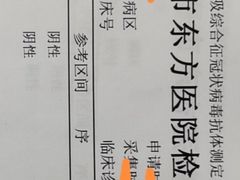 级综合征冠状病毒抗体测定
市东方医院检
申请
病区 采集
床号 临床诊
参考区间 序
阴性
阴性